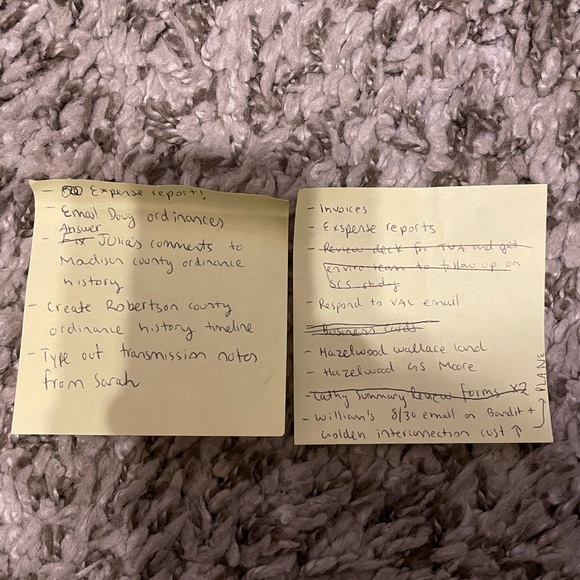 - Expense report!
- Email Doug ordinances
Answer
- Fix Julia's comments to
Madison county ordinance
history
- Create Robertson county
ordinance history timeline
- Type out transmission notes
from Sarah
- Invoices
- Exspense reports
- Review deck for TVA and get
enviro team to follow up on
SCS study
- Respond to VAL email
- Business cards
- Hazelwood wallace land
- Hazelwood GS Moore
- Cathy Summary Review Forms x2
- William's 8/30 email on Bandit +
Golden interconnection cost ↑
PLANS